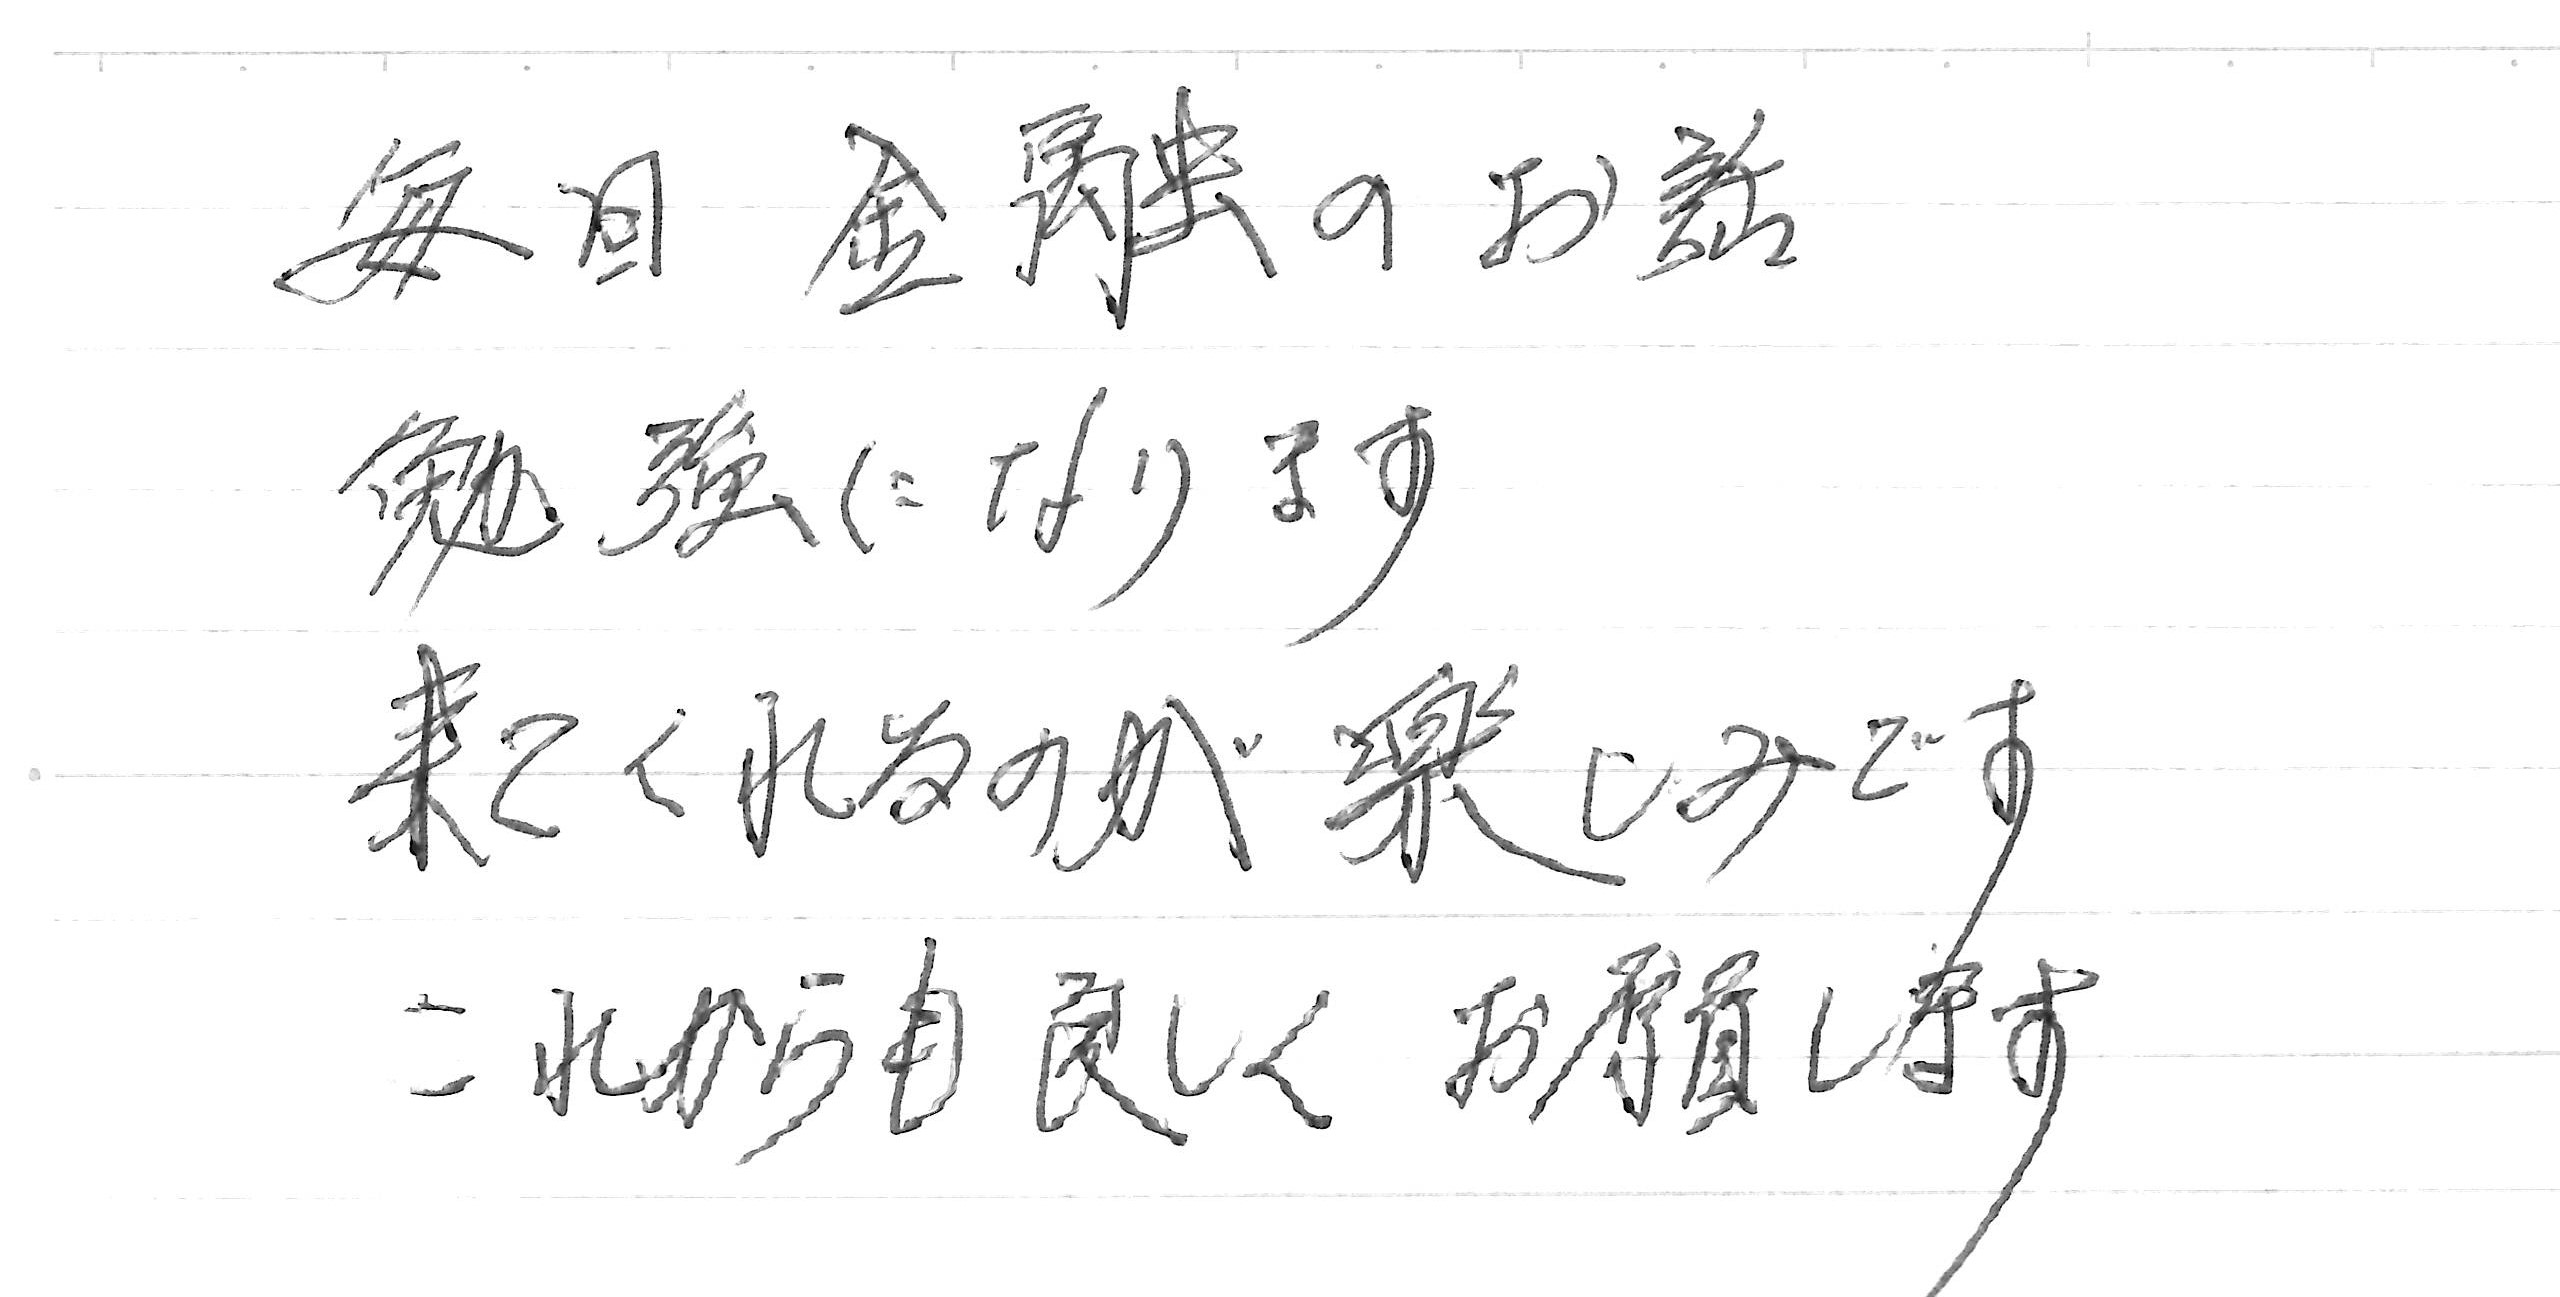 毎回 金融のお話
勉強になります
来てくれるのが楽しみです
これからも良しくお願します